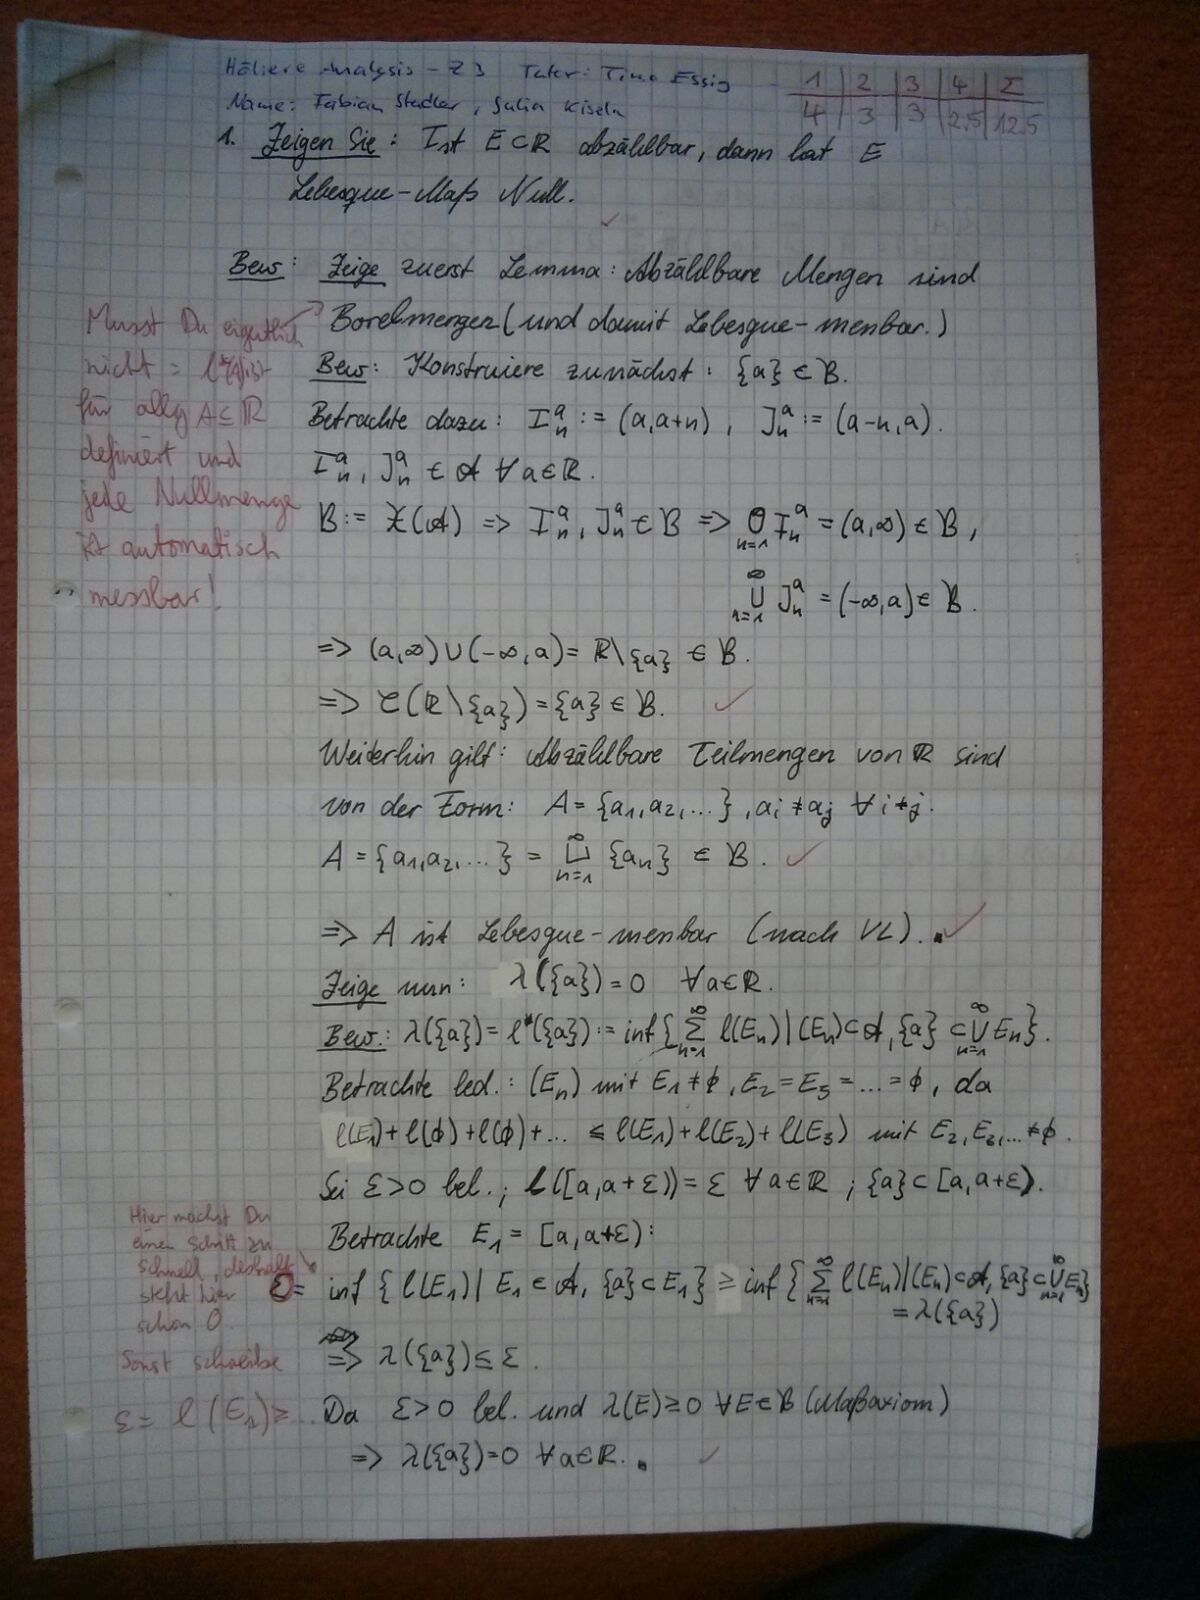 Höhere Analysis - Z3 Tutor: Timo Essig
Name: Fabian Stadler, Julia Kiseln
1 | 2 | 3 | 4 | Σ
4 | 3 | 3 | 2.5 | 12.5
1. Zeigen Sie: Ist E⊂ℝ abzählbar, dann hat E
Lebesgue-Maß Null.
Bew: Zeige zuerst Lemma: Abzählbare Mengen sind
Borelmengen (und damit Lebesgue-messbar.)
Musst Du eigentlich
nicht = l*(A) ist
für alle A⊆ℝ
definiert und
jede Nullmenge
ist automatisch
messbar!
Bew: Konstruiere zunächst: {a} ∈ B.
Betrachte dazu: I_n^a := (a,a+n), J_n^a := (a-n,a).
I_n^a, J_n^a ∈ A ∀ a∈ℝ.
B := Σ(A) => I_n^a, J_n^a ∈ B => ⋃_{n=1}^∞ I_n^a = (a,∞) ∈ B,
⋃_{n=1}^∞ J_n^a = (-∞,a) ∈ B.
=> (a,∞)∪(-∞,a) = ℝ\{a} ∈ B.
=> C(ℝ\{a}) = {a} ∈ B. ✓
Weiterhin gilt: Abzählbare Teilmengen von ℝ sind
von der Form: A = {a₁,a₂,...}, a_i ≠ a_j ∀ i≠j.
A = {a₁,a₂,...} = ⨆_{n=1}^∞ {a_n} ∈ B. ✓
=> A ist Lebesgue-messbar (nach VL). ▪ ✓
Zeige nun: λ({a}) = 0 ∀a∈ℝ.
Bew.: λ({a}) = l*({a}) := inf{∑_{n=1}^∞ l(E_n) | (E_n)⊂A, {a} ⊂ ⋃_{n=1}^∞ E_n}.
Betrachte led.: (E_n) mit E₁≠∅, E₂=E₃=...=∅, da
l(E₁)+l(∅)+l(∅)+... ≤ l(E₁)+l(E₂)+l(E₃) mit E₂,E₃,...≠∅.
Sei ε>0 bel.; l([a,a+ε)) = ε ∀ a∈ℝ; {a}⊂[a,a+ε).
Betrachte E₁ = [a,a+ε):
Hier machst Du
einen Schritt zu
schnell, deshalb
steht hier
schon 0.
Sonst schreibe
ε = l(E₁) ≥ ...
ε = inf{l(E₁) | E₁∈A, {a}⊂E₁} ≥ inf{∑_{n=1}^∞ l(E_n)|(E_n)⊂A, {a}⊂⋃_{n=1}^∞ E_n}
= λ({a})
=> λ({a}) ≤ ε.
Da ε>0 bel. und λ(E)≥0 ∀E∈B (Maßaxiom)
=> λ({a})=0 ∀a∈ℝ. ▪ ✓